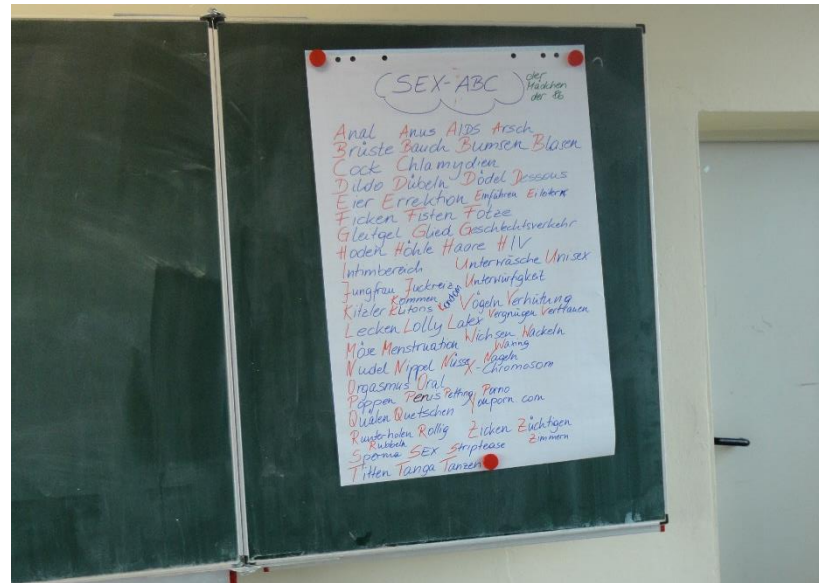 SEX-ABC
der
Mädchen
der
Anal Anus AIDS Arsch
Brüste Bauch Bumsen Blasen
Cock Chlamydien
Dildo Dübeln Dödel Dessous
Eier Errektion Einführen
Ficken Fisten Fotze
Gleitgel Glied Geschlechtsverkehr
Hoden Höhle Haare HIV
Intimbereich Unterwäsche Unisex
Jungfrau Juckreiz Unterwürfigkeit
Kommen Kondom
Kitzler Klitoris Vögeln Verhütung
Lecken Lolly Latex Vergnügen Vertrauen
Möse Menstruation Wichsen Wackeln
Waxing
Nudel Nippel Nüsse Nageln
X-Chromosom
Orgasmus Oral
Poppen Penis Petting Porno
Quälen Quetschen Youporn com
Runterholen Rollig Zicken Züchtigen
Rubbeln Zimmern
Sperma Sex Striptease
Titten Tanga Tanzen